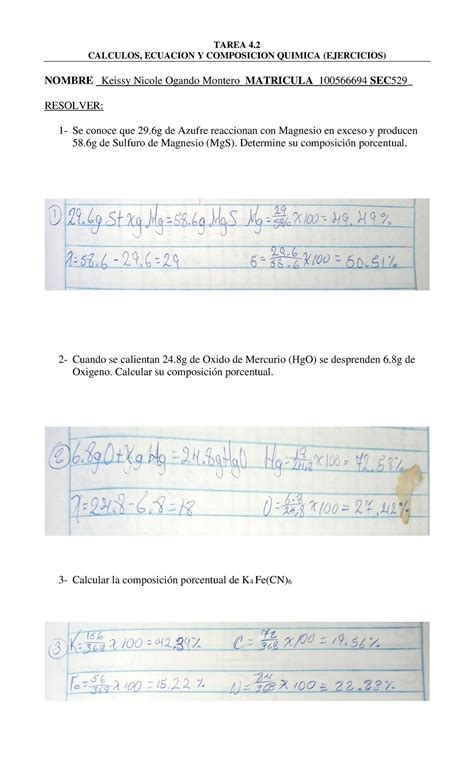 TAREA 4.2
CALCULOS, ECUACION Y COMPOSICION QUIMICA (EJERCICIOS)
NOMBRE Keissy Nicole Ogando Montero MATRICULA 100566694 SEC529
RESOLVER:
1- Se conoce que 29.6g de Azufre reaccionan con Magnesio en exceso y producen
58.6g de Sulfuro de Magnesio (MgS). Determine su composición porcentual.
① 29.6g S + Xg Mg = 58.6g MgS Mg = 29/58.6 X100 = 49.49%
X = 58.6 - 29.6 = 29 S = 29.6/58.6 X100 = 50.51%
2- Cuando se calientan 24.8g de Oxido de Mercurio (HgO) se desprenden 6.8g de
Oxigeno. Calcular su composición porcentual.
② 6.8g O + X g Hg = 24.8g HgO Hg = 18/24.8 X100 = 72.58%
X = 24.8 - 6.8 = 18 O = 6.8/24.8 X100 = 27.42%
3- Calcular la composición porcentual de K4 Fe(CN)6
③ K = 156/368 X 100 = 42.39% C = 72/368 X100 = 19.56%
Fe = 56/368 X100 = 15.22% N = 84/368 X 100 = 22.83%